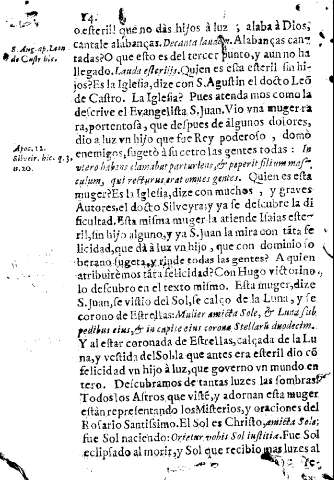 14.
o esteril! que no dàs hijos à luz; alaba à Dios,
cantale alabanças. Decanta laudem. Alabanças can-
tadas? O que esto es del tercer punto, y aun no ha
llegado. Lauda esterilis. Quien es esta esteril sin hi-
jos? Es la Iglesia, dize con S. Agustin el docto Leõ
de Castro. La Iglesia? Pues atenda mos como la
descrive el Evangelista S. Juan. Vio vna muger ra
ra, portentosa, que despues de algunos dolores,
dio a luz vn hijo que fue Rey poderoso, domò
enemigos, sugetò à su cetro las gentes todas: In
vtero habens clamabat parturiens, & peperit filium mas-
culum, qui recturus erat omnes gentes. Quien es esta
muger? Es la Iglesia, dize con muchos, y graves
Autores, el docto Silveyra; y ya se descubre la di
ficultad. Esta misma muger la atiende Isaias este-
ril, sin hijo alguno, y a S. Juan la mira con tãta fe
licidad, que dà à luz vn hijo, que con dominio so
berano sugeta, y rinde todas las gentes? A quien
atribuirèmos tãta felicidad? Con Hugo victorino,
lo descubro en el texto mismo. Esta muger, dize
S. Juan, se vistio del Sol, se calço de la Luna, y se
corono de Estrellas: Mulier amicta Sole, & Luna sub
pedibus eius, & in capite eius corona Stellarũ duodecim.
Y al estar coronada de Estrellas, calçada de la Lu
na, y vestida del Sol, la que antes era esteril dio cõ
felicidad vn hijo à luz, que governo vn mundo en
tero. Descubramos de tantas luzes las sombras.
Todos los Astros, que viste, y adornan esta muger
estàn representando los Misterios, y oraciones del
Rosario Santissimo. El Sol es Christo, amicta Sole;
fue Sol naciendo: Orietur vobis Sol iustitiæ. Fue Sol
eclipsado al morir, y Sol que recibio mas luzes al
S. Aug. ap. Leon
de Castr hic.
Apoc. 12.
Silveir. hic. q. 3.
n. 20.